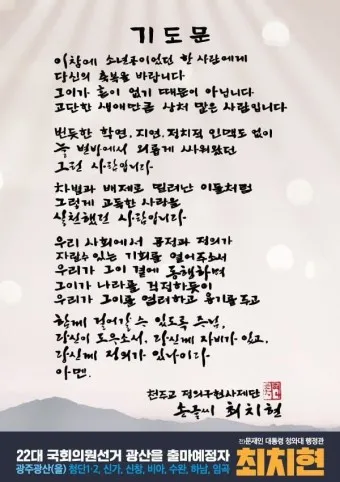 기도문
이참에 소년공이었던 한 사람에게
당신의 축복을 바랍니다
그이가 흠이 없기 때문이 아닙니다
고단한 생애만큼 상처 많은 사람입니다
번듯한 학연, 지연, 정치적 인맥도 없이
늘 변방에서 외롭게 싸워왔던
그런 사람입니다
차별과 배제로 밀려난 이들처럼
그렇게 고독한 사랑을
실천했던 사람입니다
우리 사회에서 공정과 정의가
자랄수 있는 기회를 열어주소서
우리가 그이 곁에 동행하며
그이가 나라를 걱정하듯이
우리가 그이를 염려하고 용기를 주고
함께 걸어갈 수 있도록 주님,
당신이 도우소서, 당신께 자비가 있고,
당신께 정의가 있나이다
아멘.
천주교 정의구현사제단
손글씨 최치현
22대 국회의원선거 광산을 출마예정자
광주광산(을) 첨단1·2, 신가, 신창, 비아, 수완, 하남, 임곡
전)문재인 대통령 청와대 행정관
최치현